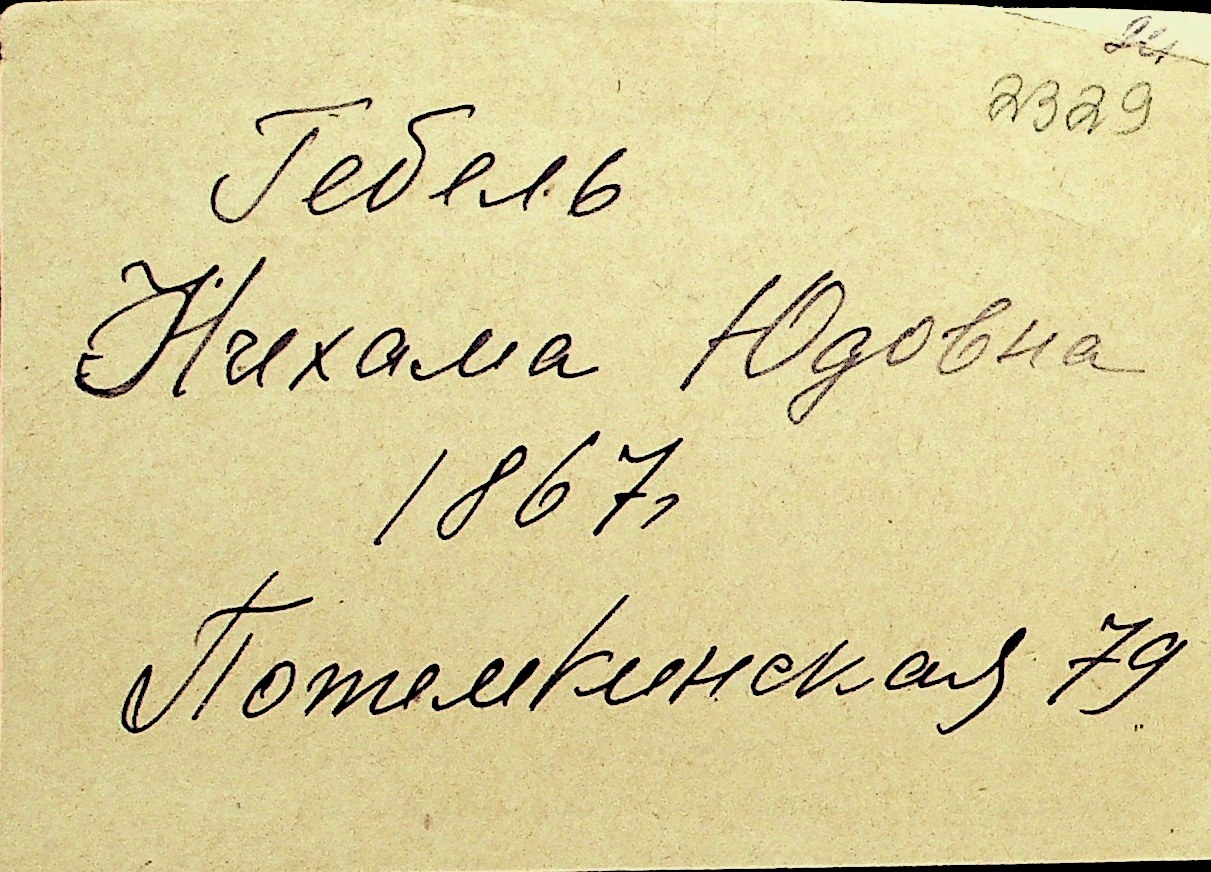 2329
Гебель
Нихама Юдовна
1867,
Потемкинская 79